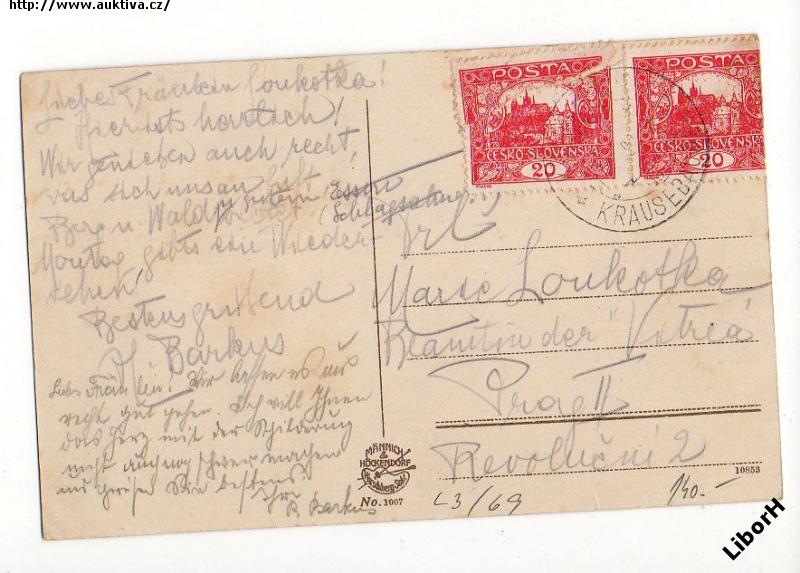 http://www.auktiva.cz/
Liebes Fräulein Loukotka!
Hier ists herrlich!
Wir genießen auch recht,
was sich uns an Luft,
Berg u. Wald, gutem Essen
(Schlagsahne)
Montag gibts ein Wieder-
sehen!
Bestens grüßend
Barkus
Liebes Fräulein! Wir lassen es uns
recht gut gehen. Ich will Ihnen
das Herz mit der Schilderung
nicht auch noch schwer machen
und grüßen Sie bestens.
Ihre
B Barkus
POSTA
ČESKO-SLOVENSKÁ
20
POSTA
ČESKO-SLOVENSKÁ
20
KRAUSEBA
Frl
Marie Loukotka
Beamtin der "Vitrea"
Prag II
Revoluční 2
MÄNNICH
&
HÖCKENDORF
No. 1007
10853
L3/69
140.-
LiborH